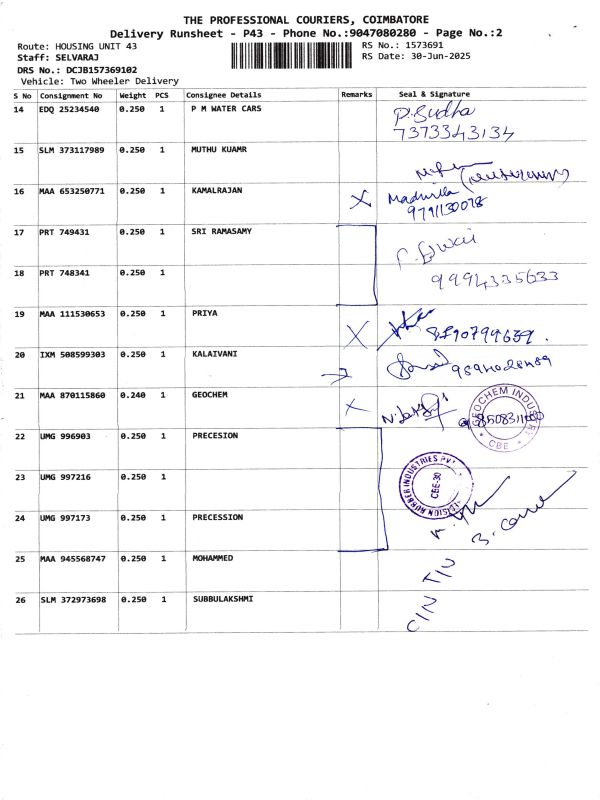 THE PROFESSIONAL COURIERS, COIMBATORE
Delivery Runsheet - P43 - Phone No.:9047080280 - Page No.:2
Route: HOUSING UNIT 43 RS No.: 1573691
Staff: SELVARAJ RS Date: 30-Jun-2025
DRS No.: DCJB157369102
Vehicle: Two Wheeler Delivery
S No Consignment No Weight PCS Consignee Details Remarks Seal & Signature
14 EDQ 25234540 0.250 1 P M WATER CARS P. Sudha
7373343134
15 SLM 373117989 0.250 1 MUTHU KUAMR
16 MAA 653250771 0.250 1 KAMALRAJAN X
9791130078
17 PRT 749431 0.250 1 SRI RAMASAMY
18 PRT 748341 0.250 1 9994335633
19 MAA 111530653 0.250 1 PRIYA X
20 IXM 508599303 0.250 1 KALAIVANI
21 MAA 870115860 0.240 1 GEOCHEM X
GEOCHEM INDUSTRY
CBE
22 UMG 996903 0.250 1 PRECESION
23 UMG 997216 0.250 1
RUBBER INDUSTRIES PVT
CBE-30
24 UMG 997173 0.250 1 PRECESSION
25 MAA 945568747 0.250 1 MOHAMMED
26 SLM 372973698 0.250 1 SUBBULAKSHMI